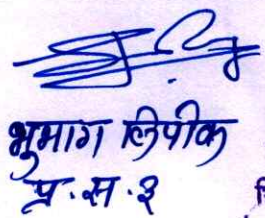 भुमाग लिपीक
प्र.स.३